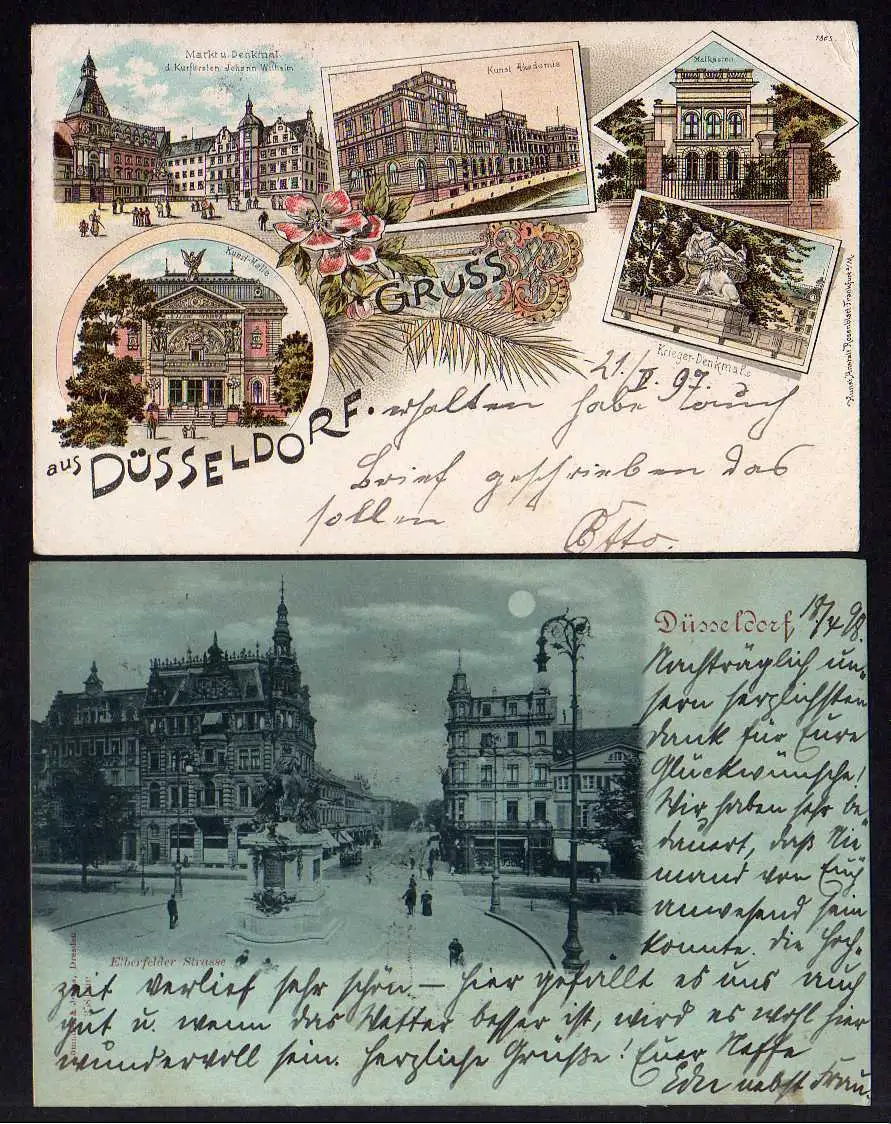 1865.
Markt u. Denkmal
d. Kurfürsten Johann Wilhelm.
Kunst Akademie
Malkasten.
Kunst-Halle
Krieger-Denkmal.
GRUSS
aus DÜSSELDORF.
Kunst-Anstalt Rosenblatt, Frankfurt a/M.
21. 97.
erhalten habe auch
Brief geschrieben das
sollen Otto.
Düsseldorf, 18/4 98.
Nachträglich un-
sern herzlichsten
Dank für Eure
Glückwünsche!
Wir haben sehr be-
dauert, daß Nie-
mand von Euch
anwesend sein
konnte. Die Hoch-
Elberfelder Strasse
Dresden
zeit verlief sehr schön – Hier gefällt es uns auch
gut u. wenn das Wetter besser ist, wird es wohl hier
wundervoll sein. Herzliche Grüße! Euer Neffe
nebst Frau.